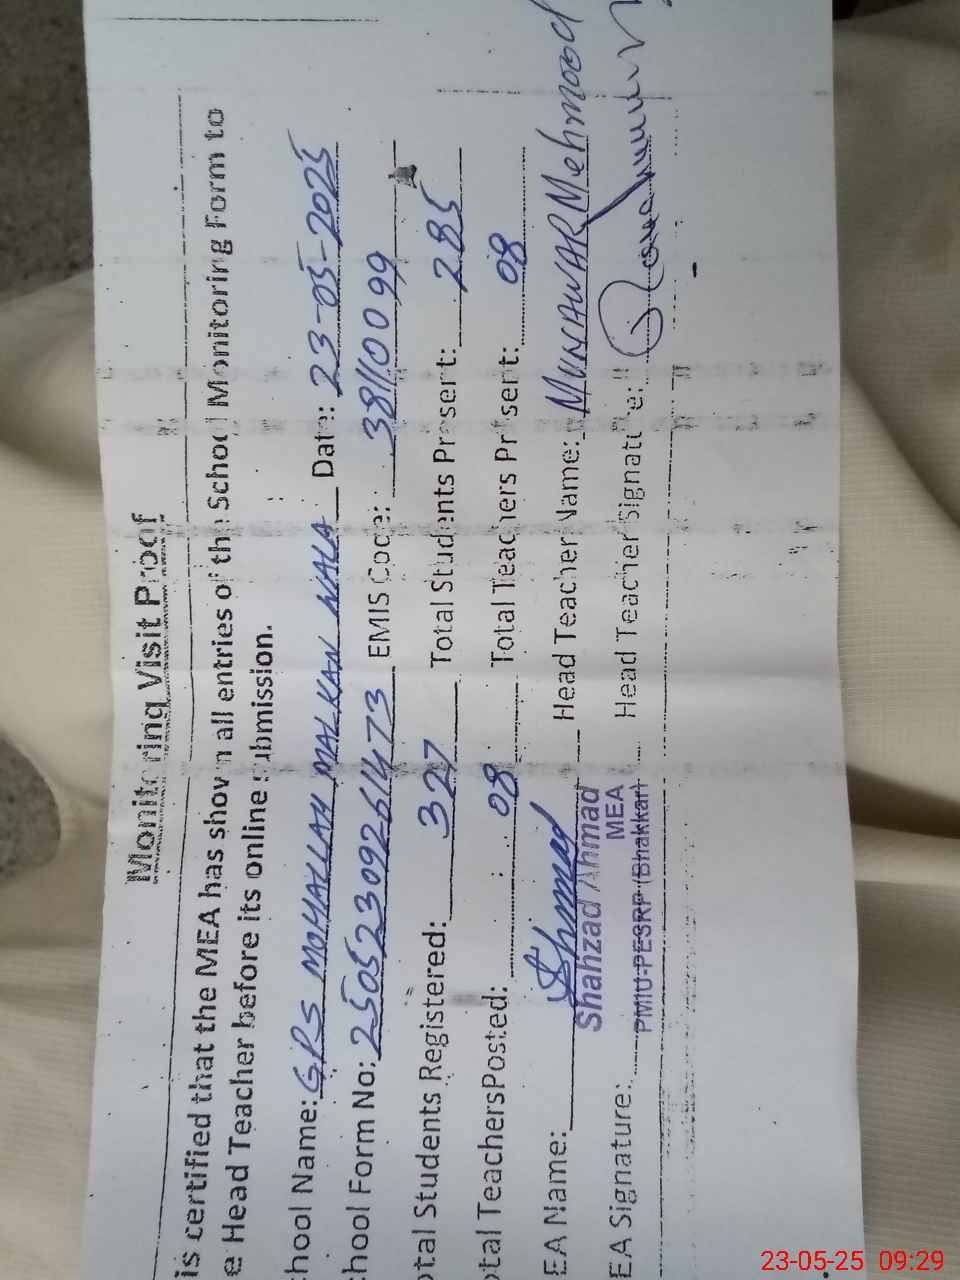 Monitoring Visit Proof
is certified that the MEA has shown all entries of the School Monitoring Form to
e Head Teacher before its online submission.
chool Name: GPS MOHALLAH MALKAN WALA Date: 23-05-2025
chool Form No: 25052309261473 EMIS Code: 38110099
otal Students Registered: 327 Total Students Present: 285
otal Teachers Posted: 08 Total Teachers Present: 08
EA Name: Head Teacher Name: MUNAWAR Mehmood
Shahzad Ahmad
MEA
EA Signature: PMIU-PESRP (Bhakkar) Head Teacher Signature:
23-05-25 09:29